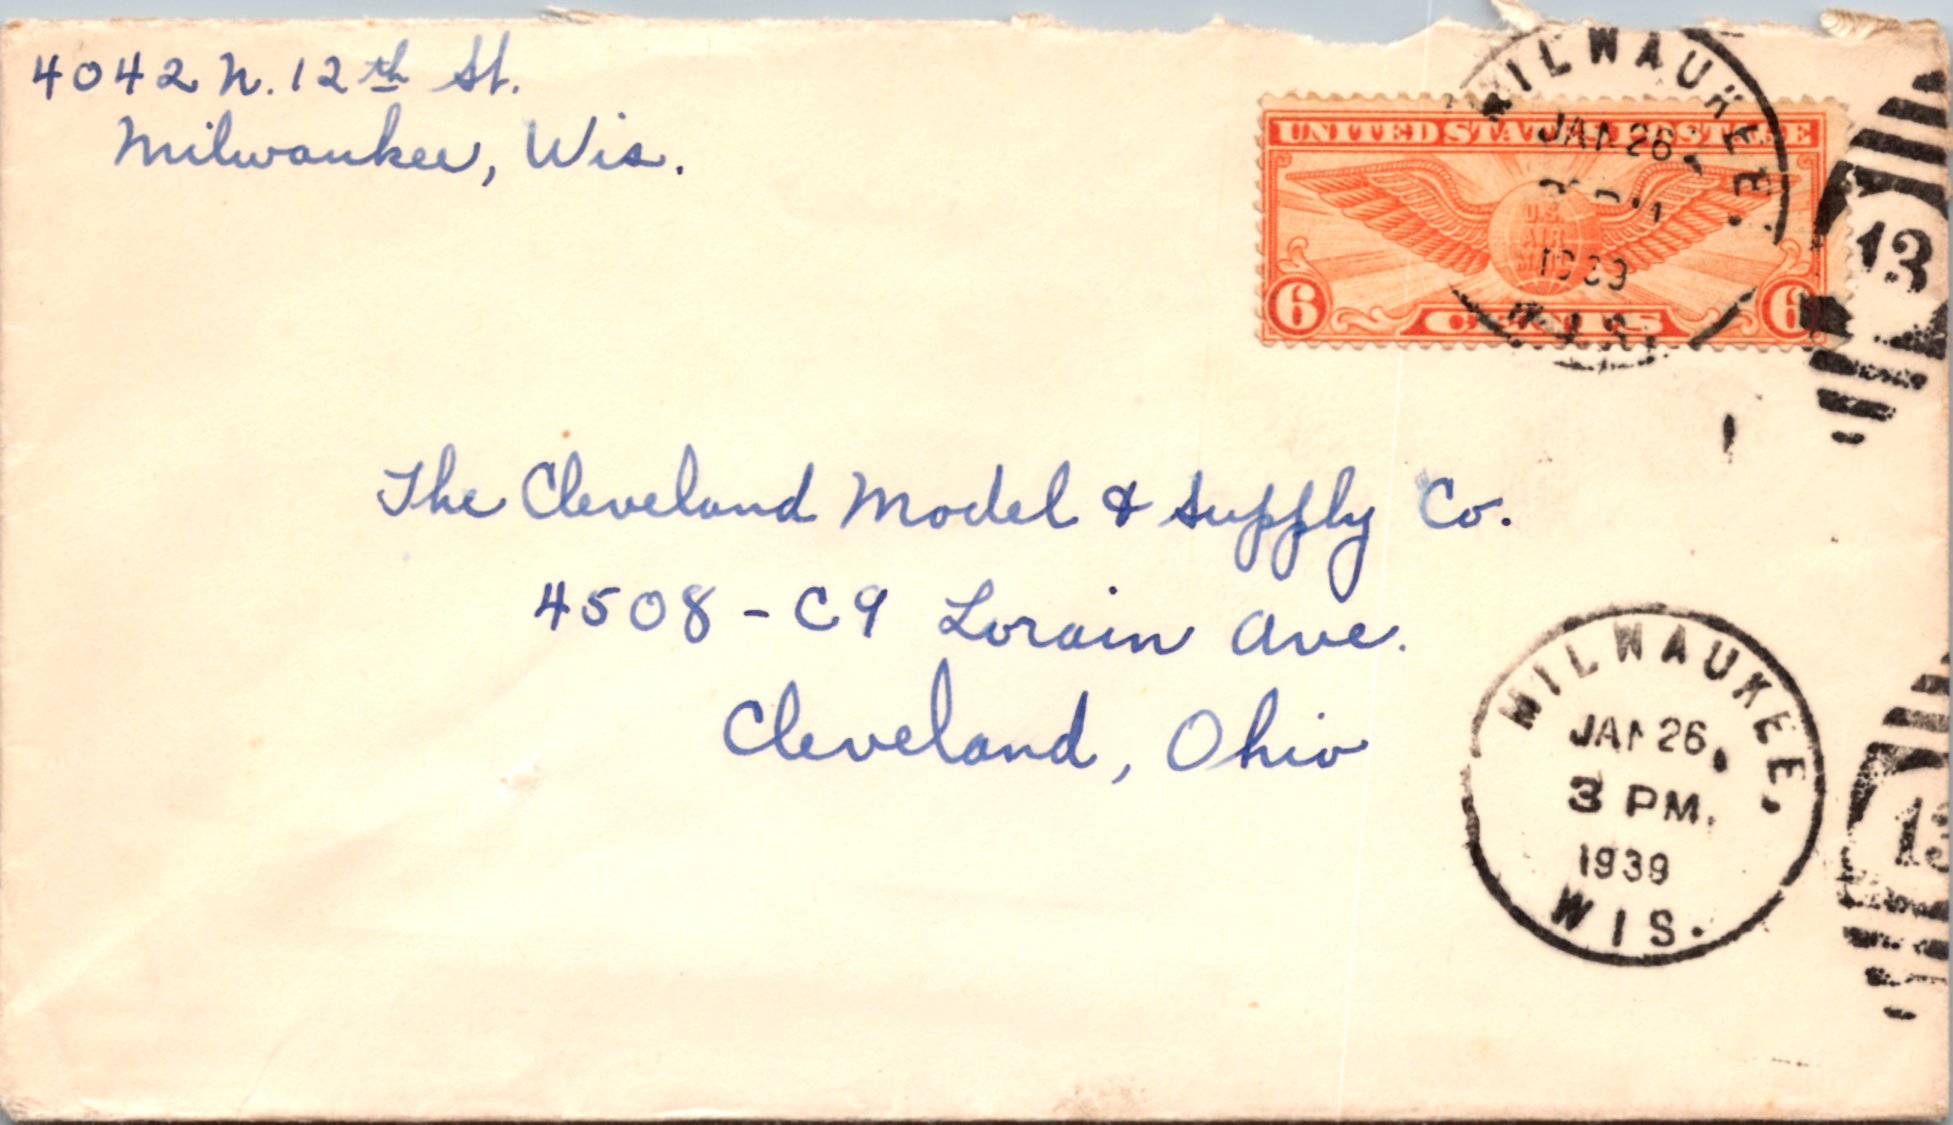 4042 N. 12th St.
Milwaukee, Wis.
UNITED STATES POSTAGE
U.S.
AIR
MAIL
6 CENTS 6
MILWAUKEE,
JAN 26
1939
WIS.
13
The Cleveland Model & Supply Co.
4508 - C9 Lorain Ave.
Cleveland, Ohio
MILWAUKEE,
JAN 26
3 PM.
1939
WIS.
13